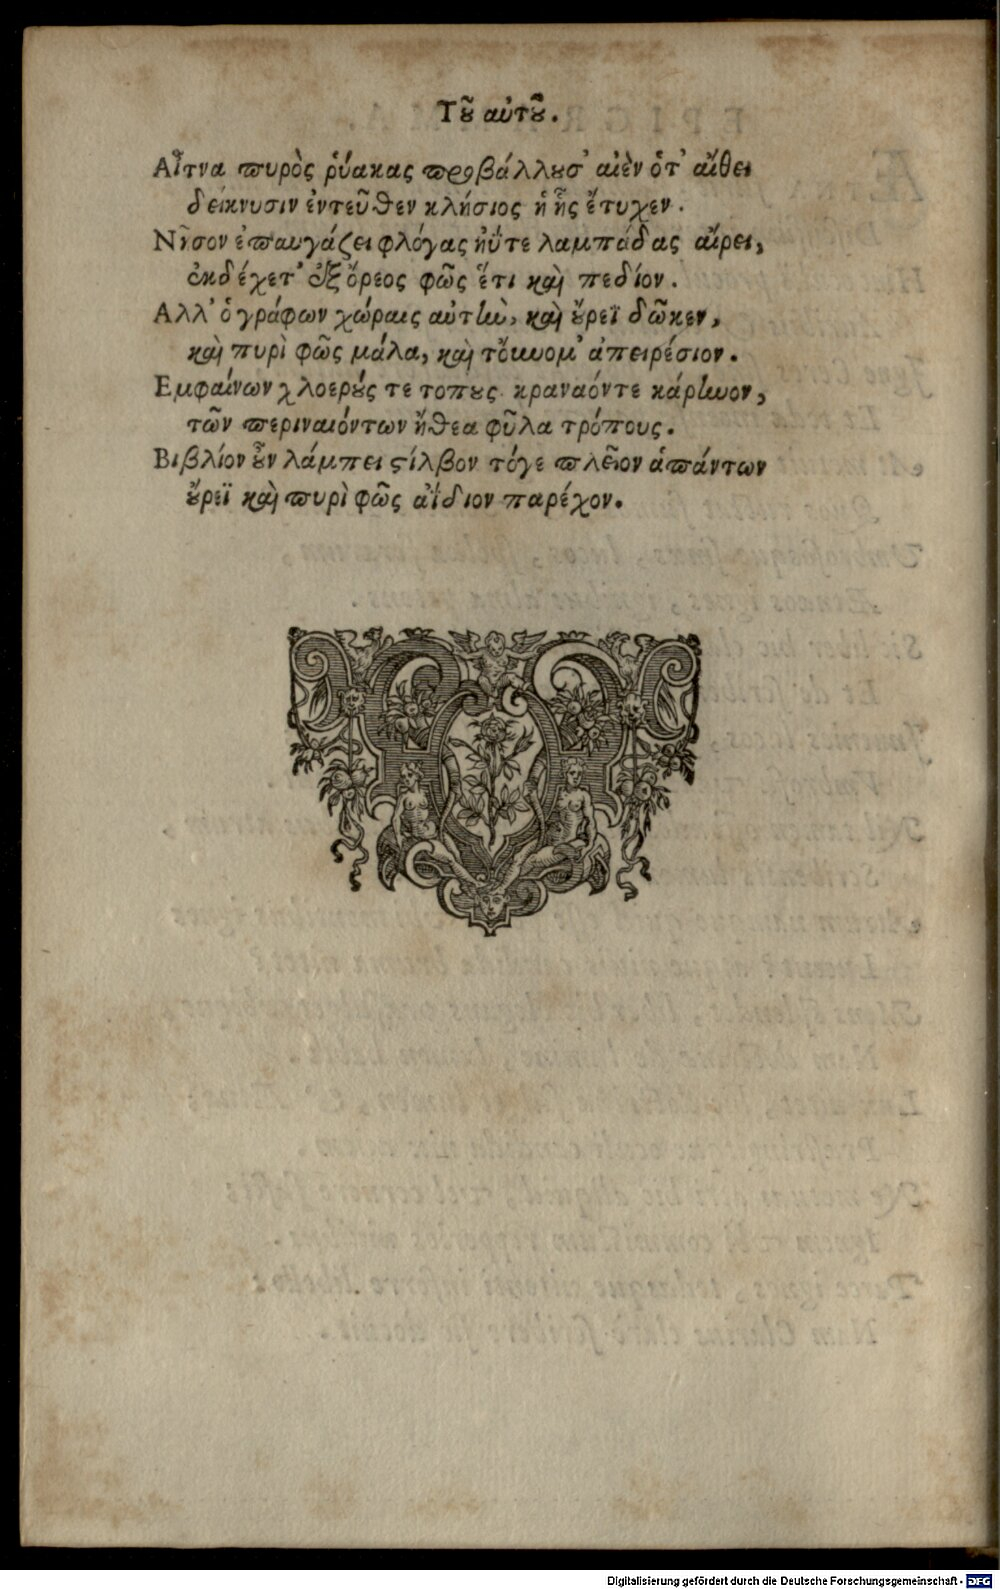 Τοῦ αὐτοῦ.
Αἴτνα πυρὸς ῥύακας προβάλλουσ' αἰὲν ὁτ' αἴθει
δείκνυσιν ἐντεῦθεν κλήσιος ἡ ἧς ἔτυχεν.
Νῆσον ἐπαυγάζει φλόγας ἠΰτε λαμπάδας αἴρει,
ἐκδέχετ' ἐξ ὄρεος φῶς ἔτι καὶ πεδίον.
Αλλ' ὁ γράφων χώραις αὐτὴν, καὶ οὔρεϊ δῶκεν,
καὶ πυρὶ φῶς μάλα, καὶ τοὔνομ' ἀπειρέσιον.
Εμφαίνων χλοερούς τε τοπους κραναόντε κάρηνον,
τῶν περιναιόντων ἤθεα φῦλα τρόπους.
Βιβλίον οὖν λάμπει στίλβον τόγε πλεῖον ἁπάντων
οὔρεϊ καὶ πυρὶ φῶς ἀΐδιον παρέχον.
Digitalisierung gefördert durch die Deutsche Forschungsgemeinschaft - DFG